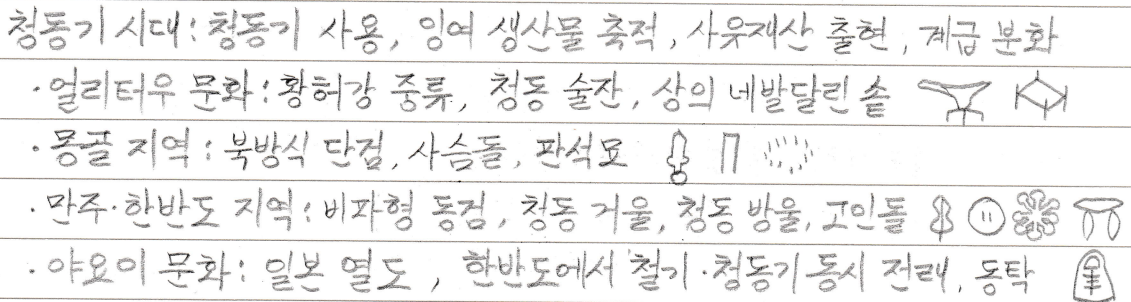 청동기 시대: 청동기 사용, 잉여 생산물 축적, 사유재산 출현, 계급 분화
· 얼리터우 문화: 황허강 중류, 청동 술잔, 상의 네발달린 솥
· 몽골 지역: 북방식 단검, 사슴돌, 판석묘
· 만주·한반도 지역: 비파형 동검, 청동 거울, 청동 방울, 고인돌
· 야요이 문화: 일본 열도, 한반도에서 철기·청동기 동시 전래, 동탁